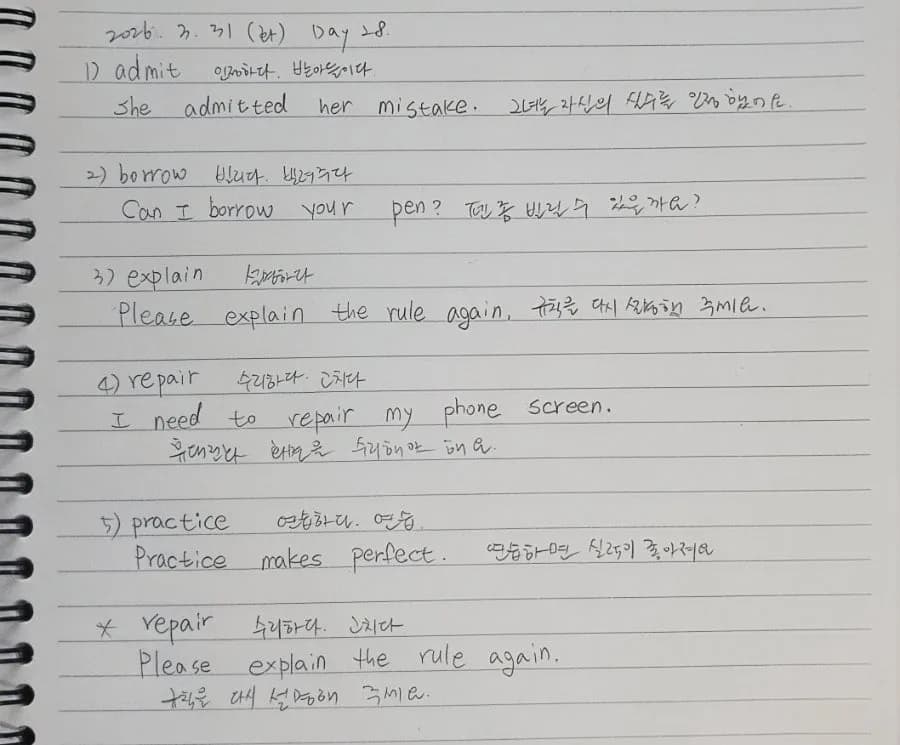 2026. 3. 31 (화) Day 28.
1) admit 인정하다. 받아들이다
She admitted her mistake. 그녀는 자신의 실수를 인정했어요.
2) borrow 빌리다. 빌려주다
Can I borrow your pen? 펜 좀 빌릴 수 있을까요?
3) explain 설명하다
Please explain the rule again. 규칙을 다시 설명해 주세요.
4) repair 수리하다. 고치다
I need to repair my phone screen.
화면을 수리해야 해요.
5) practice 연습하다. 연습
Practice makes perfect. 연습하면 실력이 좋아져요
* repair 수리하다. 고치다
Please explain the rule again.
규칙을 다시 설명해 주세요.